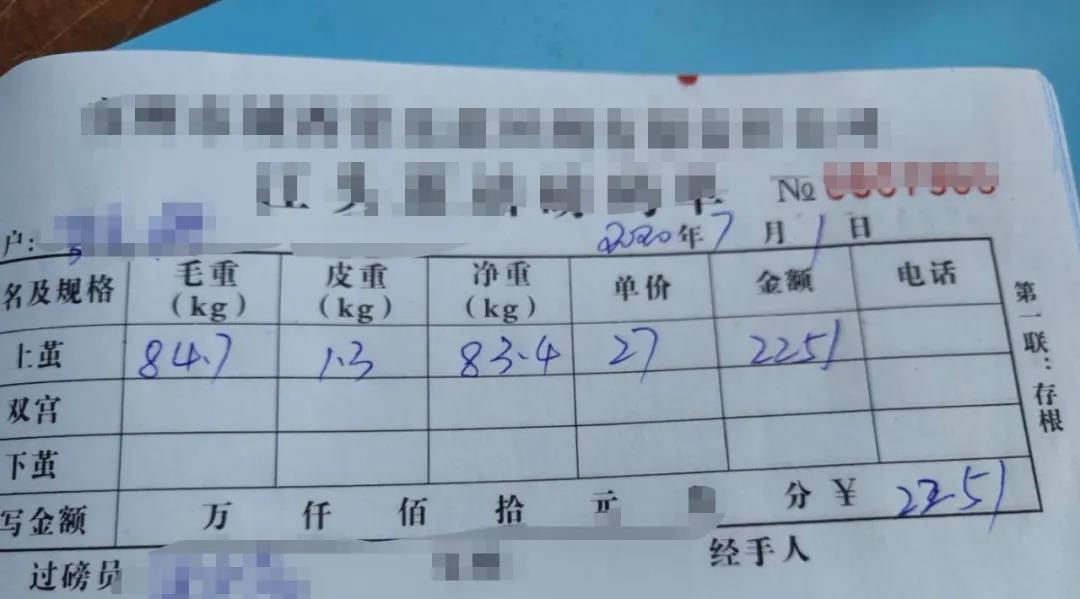 №
户: 2020年7月1日
名及规格 毛重(kg) 皮重(kg) 净重(kg) 单价 金额 电话
上茧 84.7 1.3 83.4 27 2251
双宫
下茧
写金额 万 仟 佰 拾 元 分 ¥ 2251
过磅员 经手人
第一联：存根